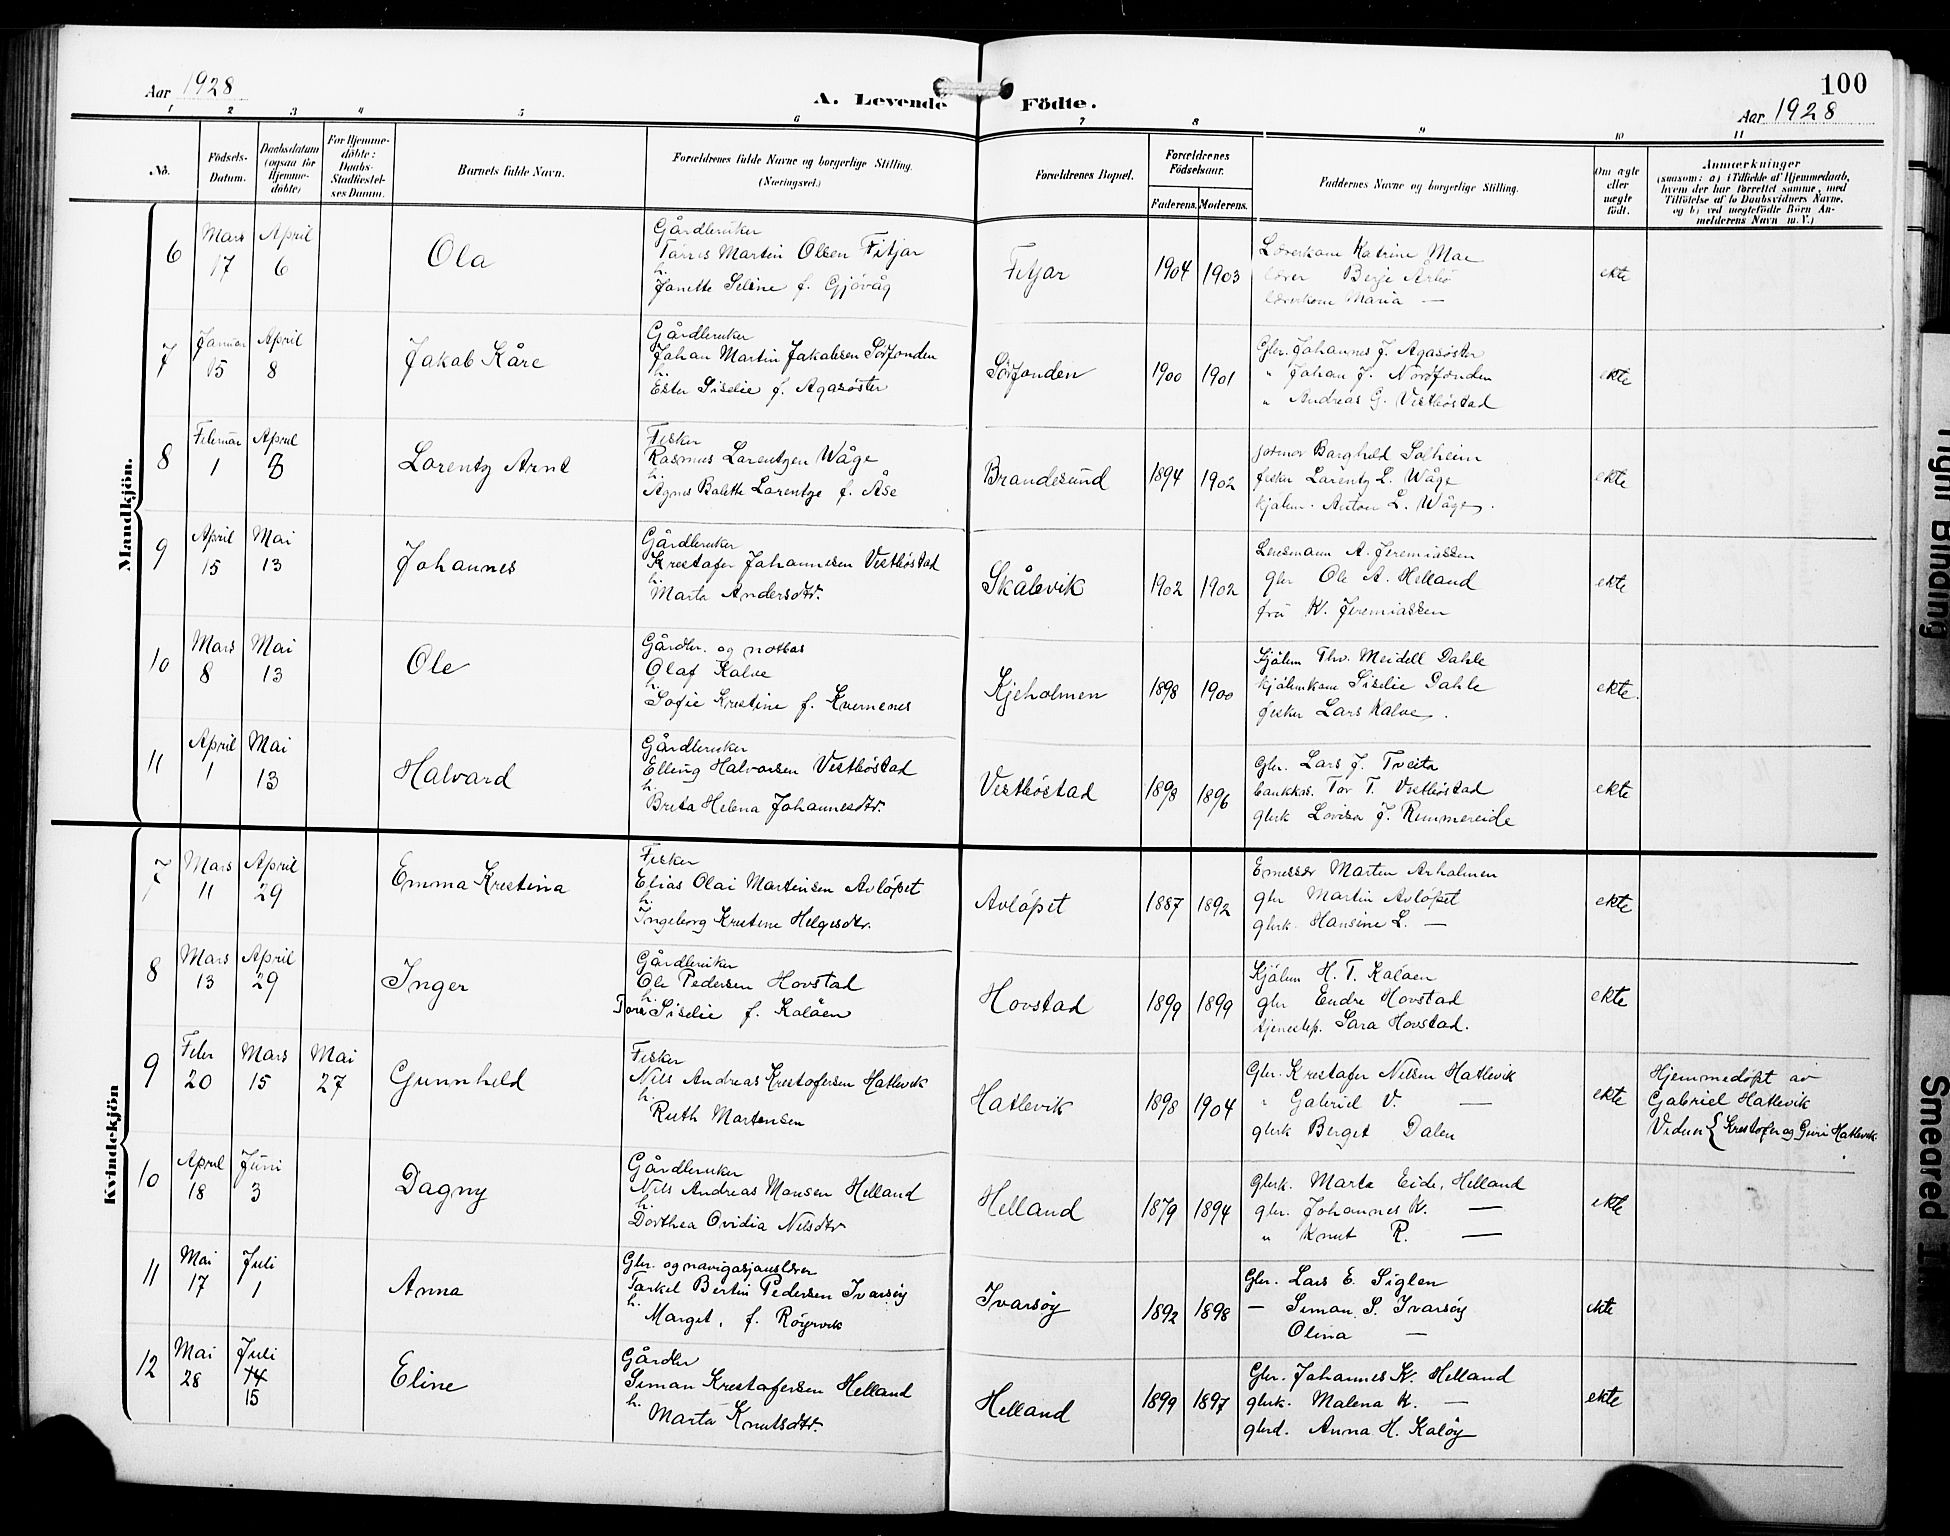 100
Aar 1928
A. Levende Födte.
Aar 1928
1 2 3 4 5 6 7 8 9 10 11
No.
Födsels-Datum.
Daabsdatum (ogsaa for Hjemme-döbte)
For Hjemme-döbte: Daabs-Stadfæstel-ses Datum.
Barnets fulde Navn.
Forældrenes fulde Navne og borgerlige Stilling. (Næringsvei.)
Forældrenes Bopæl.
Forældrenes Födselsaar.
Faderens. Moderens.
Faddernes Navne og borgerlige Stilling.
Om ægte eller uægte födt.
Anmærkninger
(saasom: a) i Tilfælde af Hjemmedaab,
hvem der har forrettet samme, med
Tilföielse af to Daabsvidners Navne,
og b) ved uægtefödte Börn An-
melderens Navn m. V.)
Mandkjön.
6 Mars 17 April 6 Ola
Gårdbruker
Martin Olsen Fitjar
h.
Janette Seline f. Gjövåg
Fitjar 1904 1903
Lærerkone Katrine Moe
lærer Berje
lærerkone Maria —
ekte
7 Januar 15 April 8 Jakob Kåre
Gårdbruker
Johan Martin Jakobsen Sörfonden
h.
Ester Siselie f. Agasöster
Sörfonden 1900 1901
Gbr. Johannes J. Agasöster
" Johan J. Nordfonden
" Andreas G. Vestböstad
ekte
8 Februar 1 April 8 Lorentz Arnt
Fisker
Rasmus Larentzen Wåge
h.
Agnes Balette Larentze f. Åse
Brandesund 1894 1902
jotmor Borghild Solheim
fisker Larentz L. Wåge
kjøbm. Anton L. Wåge.
ekte
9 April 15 Mai 13 Johannes
Gårdbruker
Krestofer Johannesen Vestböstad
h.
Marta Andersdtr.
Skålevik 1902 1902
Lensmann A. Jeremiassen
gbr Ole A. Helland
fru K. Jeremiassen
ekte
10 Mars 8 Mai 13 Ole
Gårdbr. og notbas
Olaf Kalve
h.
Sofie Krestine f. Kvernenes
Kjeholmen 1898 1900
Kjöbm Thv. Meidell Dahle
kjöbmkone Siselie Dahle
fisker Lars Kalve.
ekte.
11 April 1 Mai 13 Halvard
Gårdbruker
Elling Halvorsen Vestböstad
h.
Breta Helena Johannesdtr.
Vestböstad 1898 1896
Gbr. Lars J. Tveita
bankkas. Tor T. Vestböstad
gbrk Lovisa J. Rimmereide
ekte
Kvindekjön
7 Mars 11 April 29 Emma Krestina
Fisker
Elias Olai Martinsen Avlöpet
h.
Ingeborg Krestine Helgesdtr.
Avlöpet 1887 1892
Emissær Marten Arholmen
gbr Martin Avlöpet
gbrk. Hansine L. —
ekte
8 Mars 13 April 29 Inger
Gårdbruker
Ole Pedersen Hovstad
h.
Tora Siselie f. Kalöen
Hovstad 1899 1899
Kjöbm H. T. Kalöen
gbr Endre Hovstad
tjenestep. Sara Hovstad.
ekte
9 Febr 20 Mars 15 Mai 27 Gunnhild
Fisker
Nils Andreas Krestofersen Hatlevik
h.
Ruth Martensen
Hatlevik 1898 1904
Gbr. Krestofer Nilsen Hatlevik
" Gabriel V. —
gbrk Berget Dalen
ekte
Hjemmedöpt av
Gabriel Hatlevik
Vidner { Krestofer og Guri Hatlevik
10 April 18 Juni 3 Dagny
Gårdbruker
Nils Andreas Monsen Helland
h.
Dorthea Ovidia Nelsdtr
Helland 1879 1894
Gbrk. Marta Eide, Helland
gbr. Johannes K. —
" Knut R. —
ekte
11 Mai 17 Juli 1 Anna
Gbr. og navigasjonslærer
Torkel Bertin Pedersen Ivarsöy
h.
Marget, f. Röyrvik
Ivarsöy 1892 1898
Gbr. Lars E. Siglen
— Simon S. Ivarsöy
Olina —
ekte
12 Mai 28 Juli 14 15 Eline
Gårdbr
Simon Krestofersen Helland
h.
Marta Knutsdtr.
Helland 1899 1897
Gbr. Johannes K. Helland
gbrk. Malena K. —
gbrd. Anna H. Kalöy
ekte
Tight Binding
Smeared